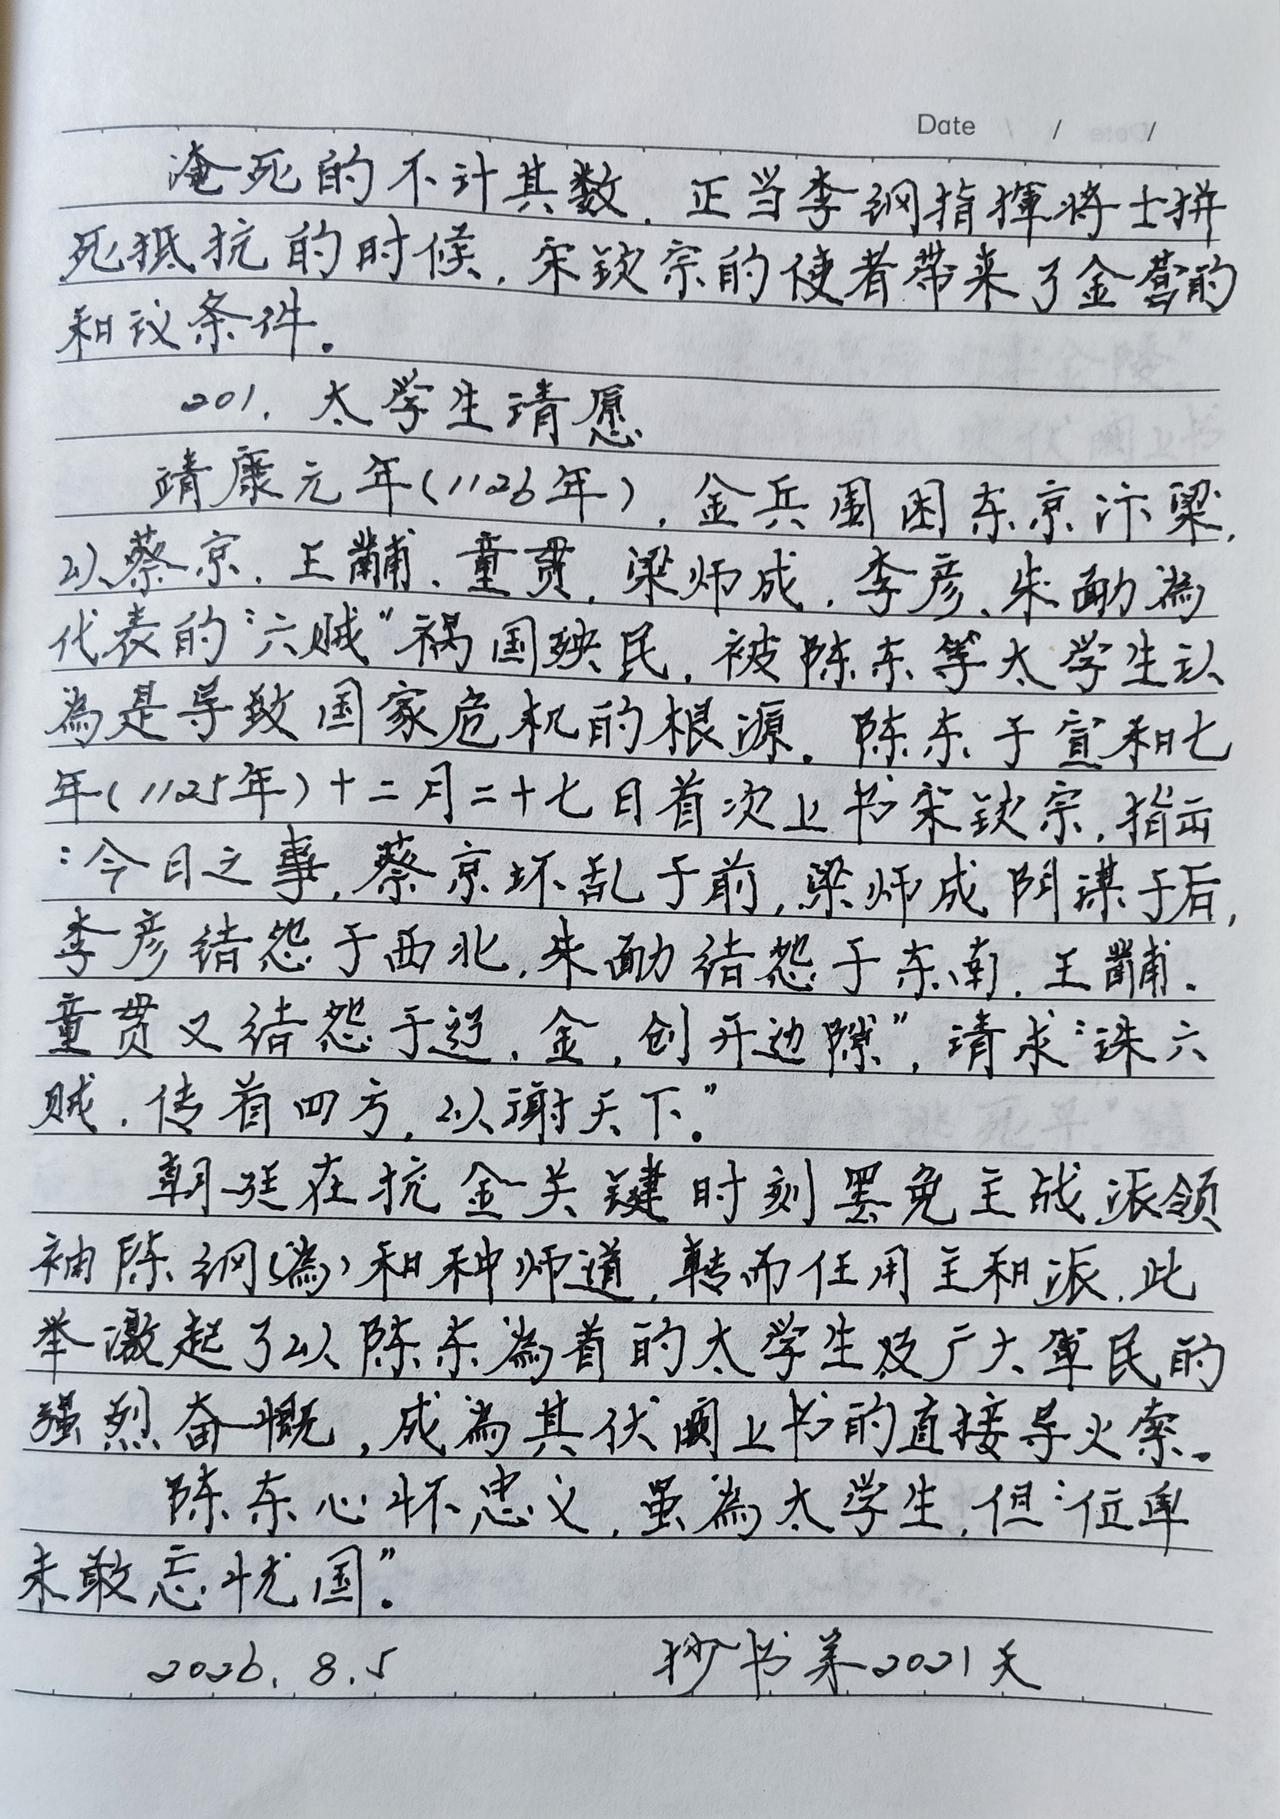 Date / / /
淹死的不计其数,正当李纲指揮将士拼
死抵抗的时候,宋钦宗的使者带来了金营的
和议条件。
201. 太学生请愿
靖康元年(1126年),金兵围困东京汴梁,
以蔡京、王黼、童贯,梁师成,李彦、朱勔為
代表的“六贼”祸国殃民,被陈东等太学生认
為是导致国家危机的根源。陈东于宣和七
年(1125年)十二月二十七日首次上书宋钦宗,指出
:今日之事,蔡京坏乱于前,梁师成阴谋于后,
李彦结怨于西北,朱勔结怨于东南,王黼、
童贯又结怨于辽,金,创开边隙”,请求“诛六
贼,传首四方,以谢天下。”
朝廷在抗金关键时刻罢免主战派领
袖陈纲(為)和种师道,转而任用主和派,此
举激起了以陈东為首的太学生及广大军民的
强烈奋慨,成為其伏阙上书的直接导火索。
陈东心怀忠义,虽為太学生,但“位卑
未敢忘忧国”。
2026.8.5 抄书第2021天